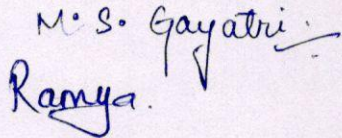 M. S. Gayatri.
Ramya.